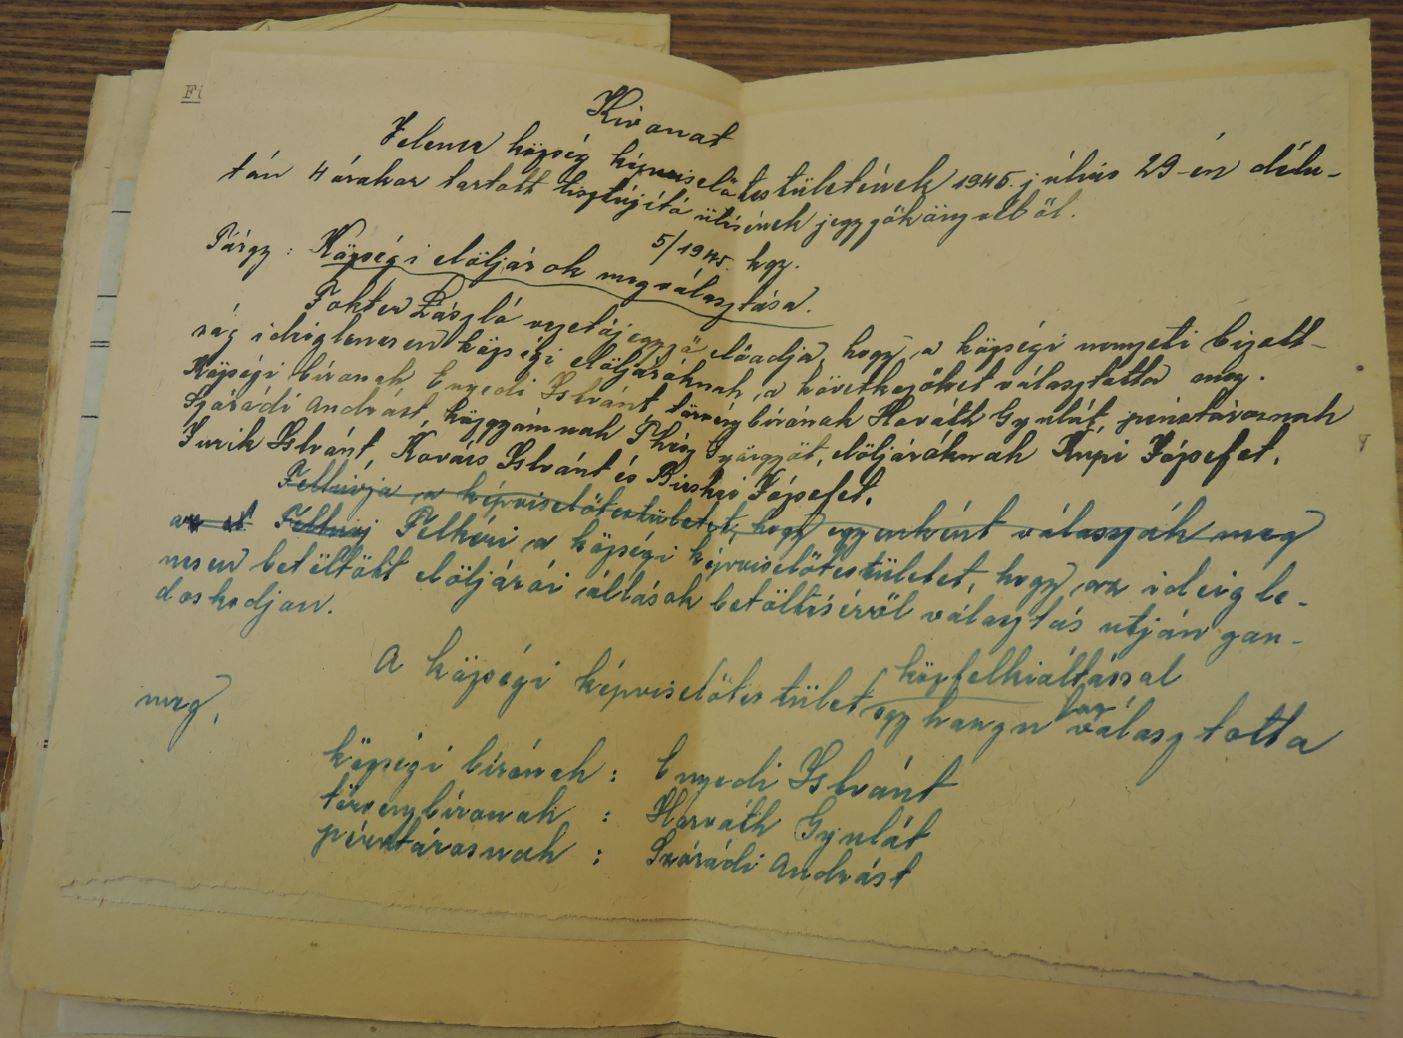 Fi
Kivonat
Jelenca község képviselőtestületének 1945. július 29-én délu-
tán 4 órakor tartott tisztújító ülésének jegyzőkönyvéből.
5/1945. kgy.
Tárgy: Községi elöljárok megválasztása.
Fokter László vezetőjegyző előadja, hogy a községi nemzeti bizott-
ság ideiglenesen községi elöljáróknak a következőket választotta meg.
Községi bírónak Enyedi Istvánt, törvénybírónak Horváth Gyulát, pénztárosnak
Szórádi Andrást, közgyámnak György Györgyöt, elöljáróknak Kupi Józsefet,
Jurik Istvánt, Kovács Istvánt és Józsefet.
Felhívja a képviselőtestületet, hogy egyenként válasszák meg
Felhívj Felkéri a községi képviselőtestületet, hogy az ideigle-
nesen betöltött elöljárói állások betöltéséről választás utján gon-
doskodjon.
közfelkiáltással
A községi képviselőtestület egyhangulag választotta
meg,
községi bírónak: Enyedi Istvánt
törvénybíronak: Horváth Gyulát
pénztárosnak: Szórádi Andrást